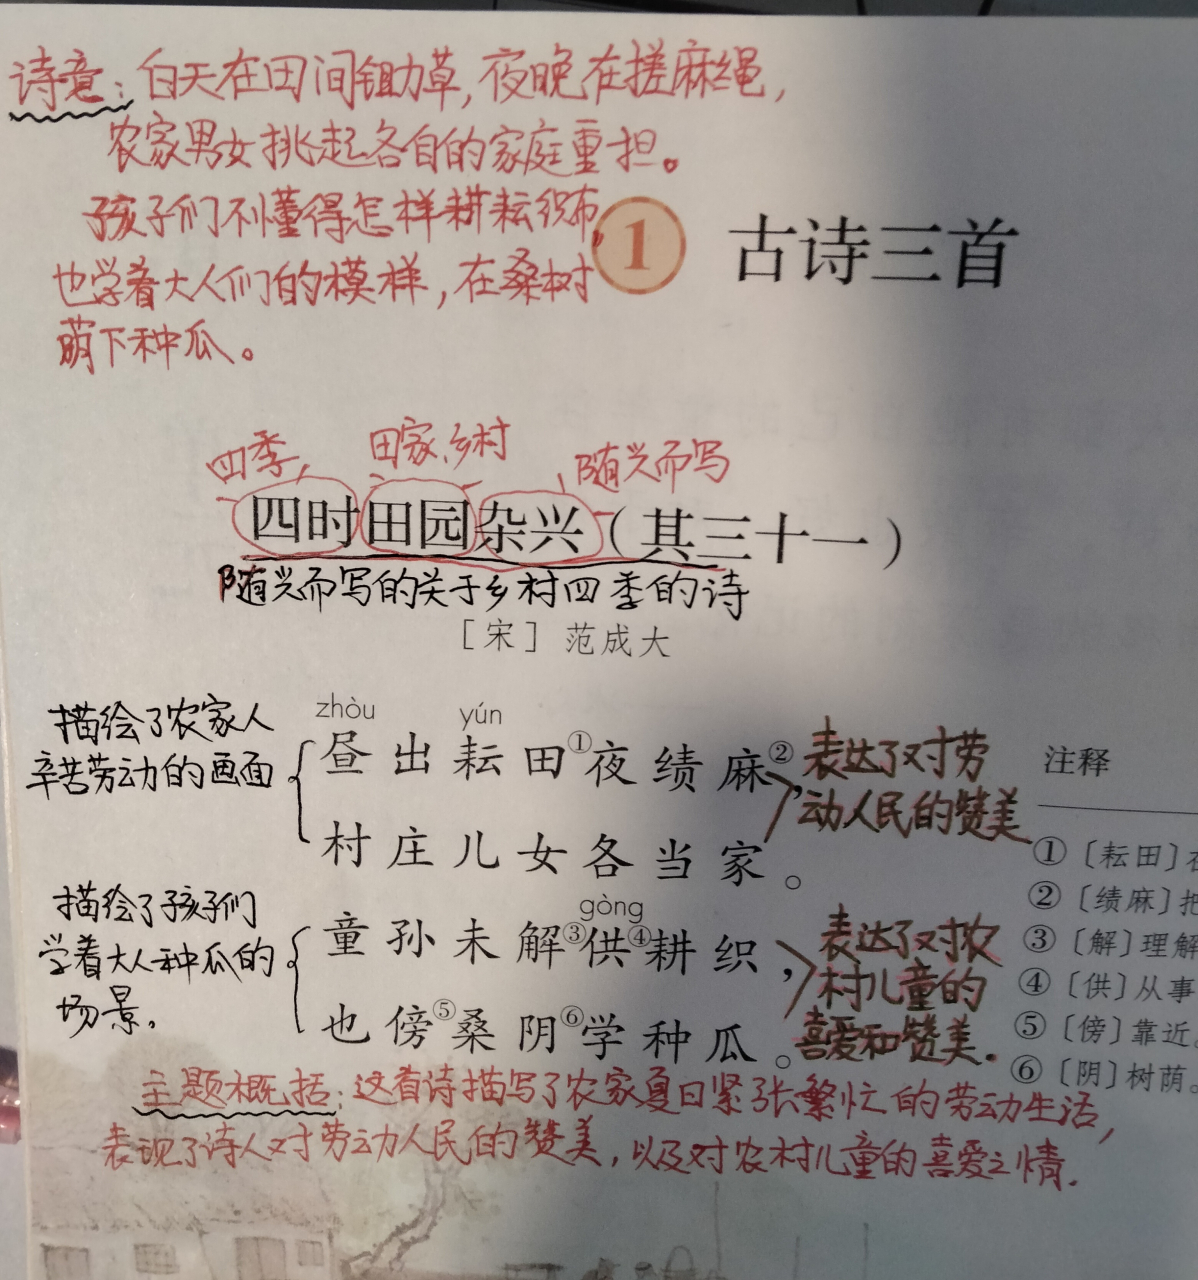 诗意：白天在田间锄草，夜晚在搓麻绳，
农家男女挑起各自的家庭重担。
孩子们不懂得怎样耕耘织布，
也学着大人们的模样，在桑树
荫下种瓜。
1 古诗三首
四季， 田家、乡村 随兴而写
四时田园杂兴（其三十一）
随兴而写的关于乡村四季的诗
［宋］范成大
描绘了农家人
辛苦劳动的画面
zhòu yún
昼出耘田①夜绩麻②，
村庄儿女各当家。
表达了对劳
动人民的赞美
描绘了孩子们
学着大人种瓜的
场景。
gòng
童孙未解③供④耕织，
也傍⑤桑阴⑥学种瓜。
表达了对农
村儿童的
喜爱和赞美.
注释
①〔耘田〕在
②〔绩麻〕把
③〔解〕理解
④〔供〕从事
⑤〔傍〕靠近。
⑥〔阴〕树荫。
主题概括：这首诗描写了农家夏日紧张繁忙的劳动生活，
表现了诗人对劳动人民的赞美，以及对农村儿童的喜爱之情.